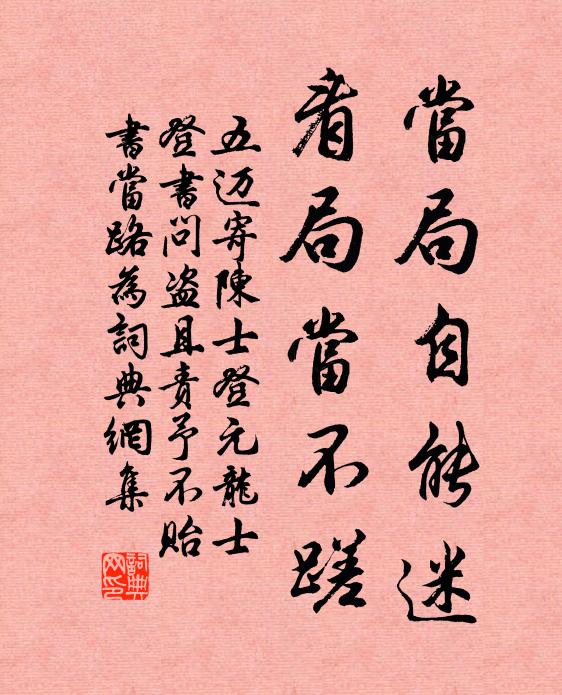 當局自能迷
看局當不蹉
五迈寄陳士登元龍士
登書問盗且责予不貽
書當路為詞典網集
詞典网印